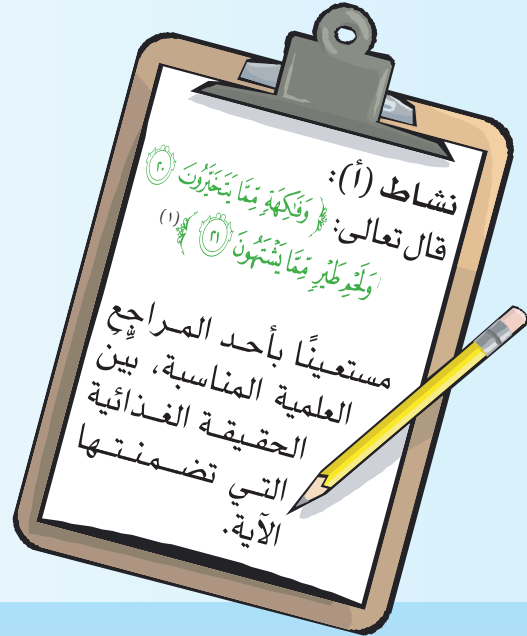 نشاط (أ):
قال تعالى: ﴿ وَفَٰكِهَةٖ مِّمَّا يَتَخَيَّرُونَ ٢٠
وَلَحۡمِ طَيۡرٖ مِّمَّا يَشۡتَهُونَ ٢١ ﴾ (١)
مستعينًا بأحد المراجع
العلمية المناسبة، بيِّن
الحقيقة الغذائية
التي تضمنتها
الآية.